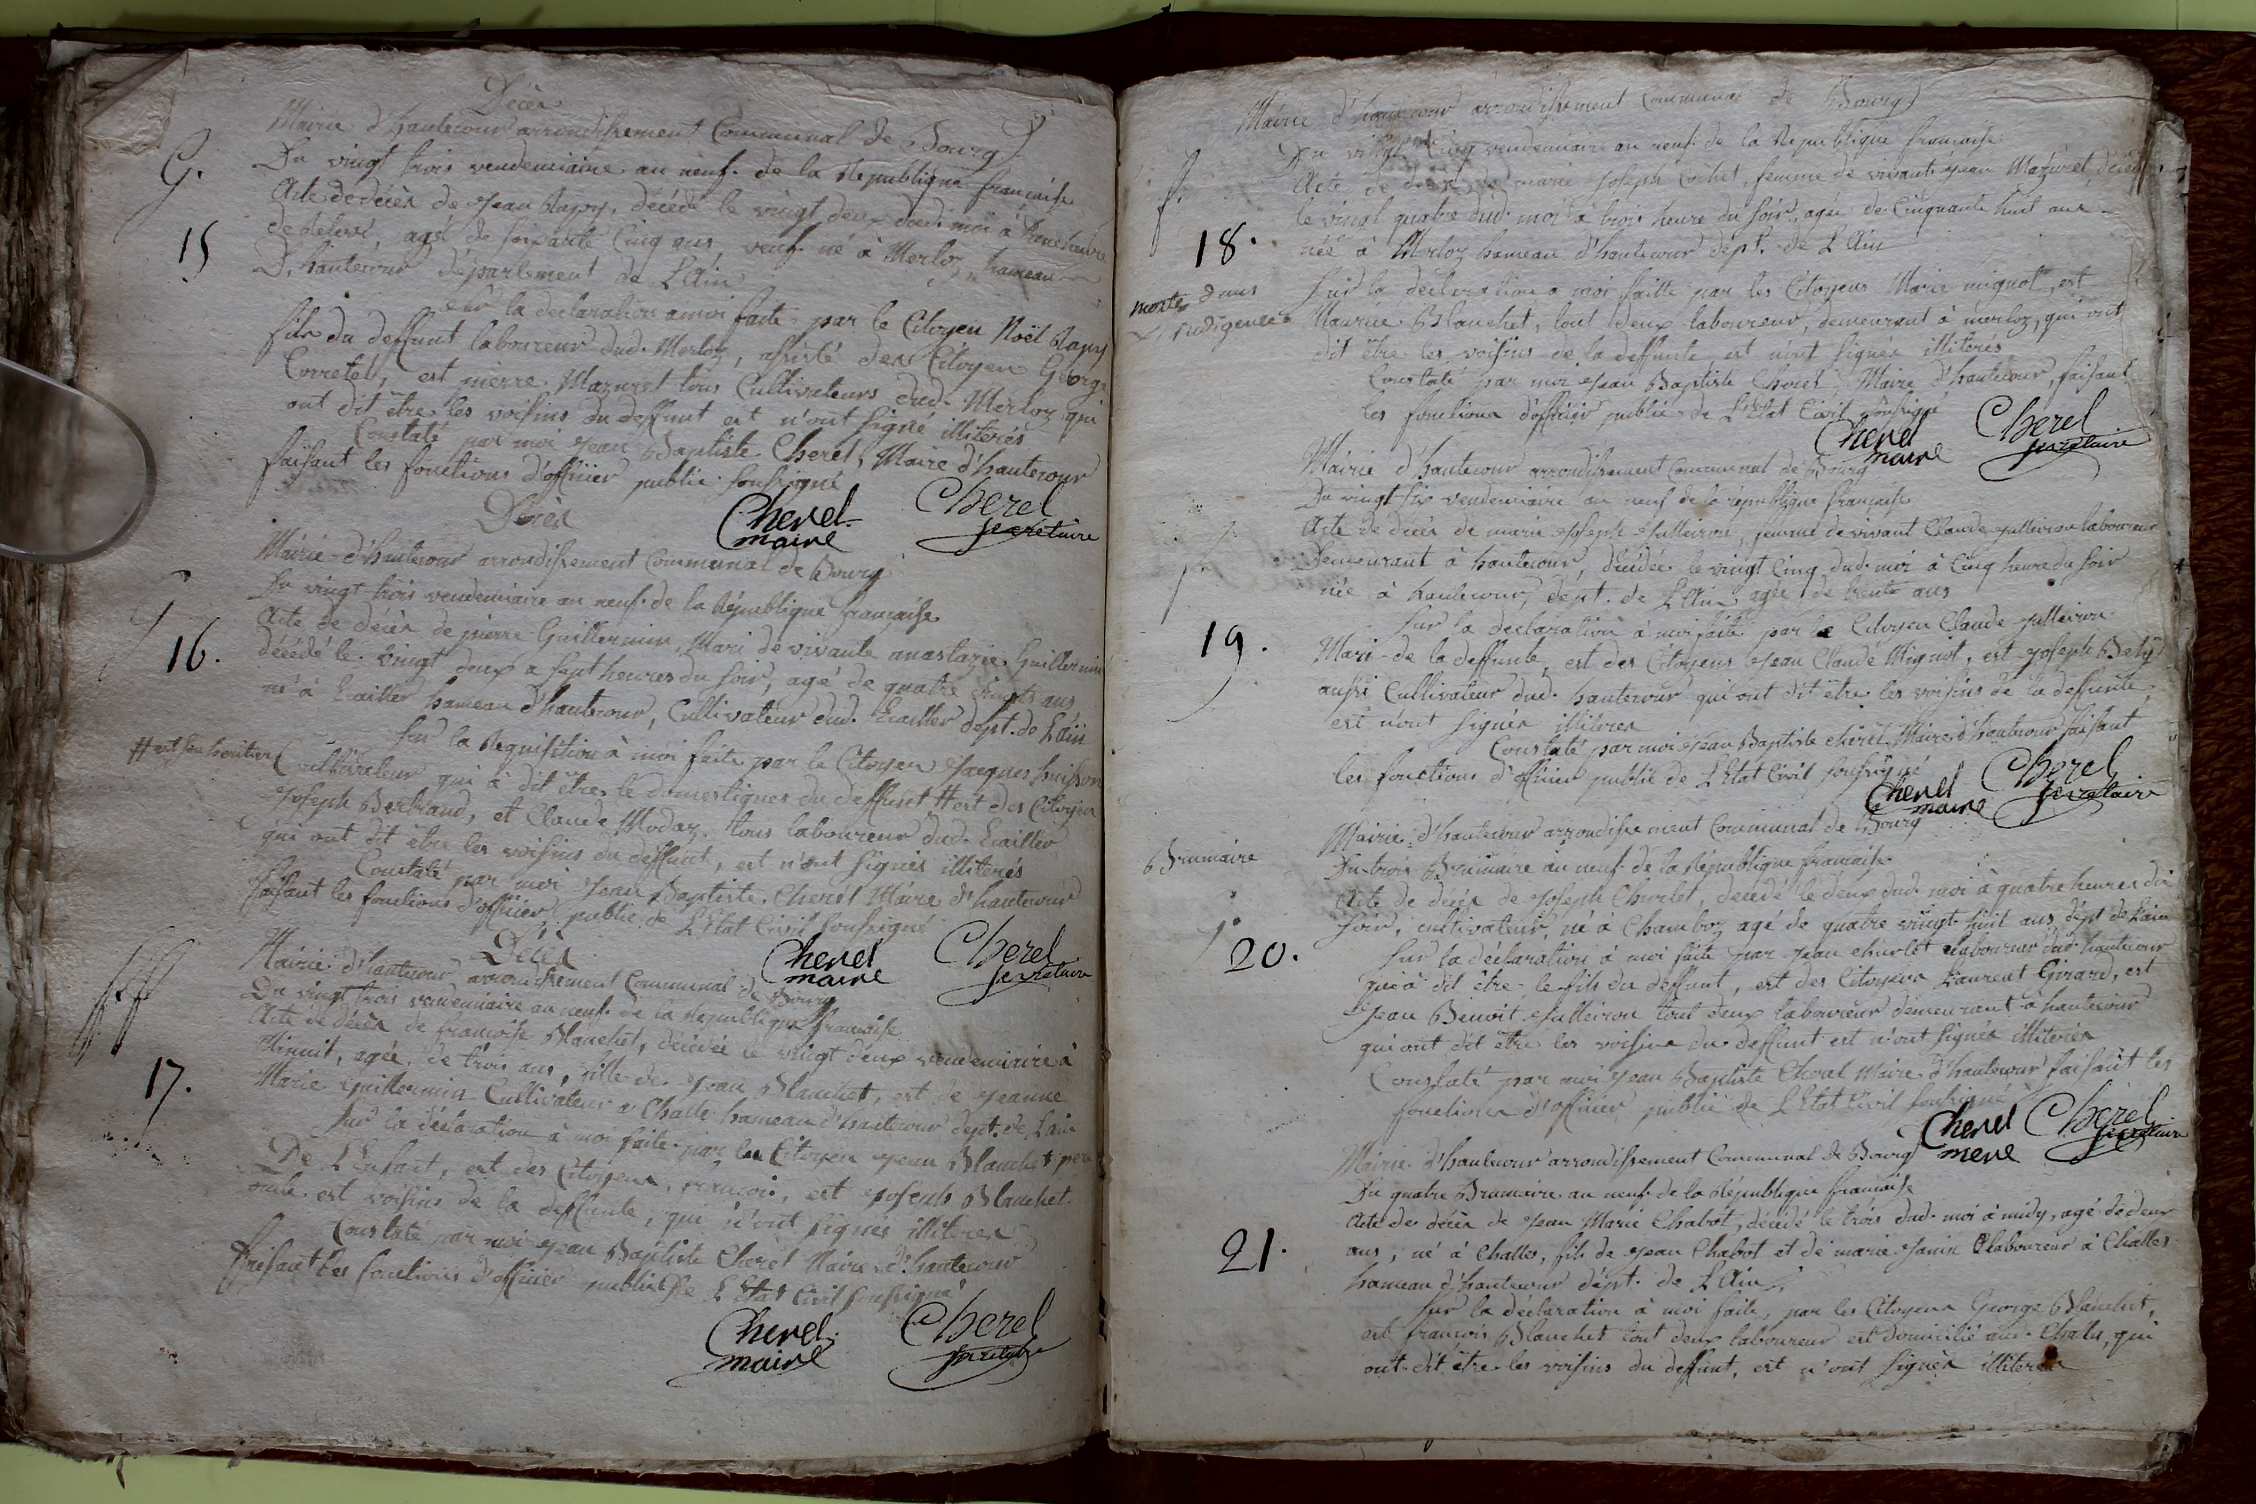 Décès
Mairie d'hautecour arrondissement Communal de Bourg
G. Du vingt trois vendemiaire an neuf de la Republique française
Acte de décès de Jean Rapy, décédé le vingt deux dud. moi à
15 agé de soixante Cinq ans, veuf né à Merloz hameau
D'hautecour département de L'Ain
sur la declaration a moi faite par le Citoyen Noël Rapy
fils du deffunt laboureur dud. Merloz, assisté des Citoyen George
Corretel, est pierre Mazuret tous Cultivateurs dud. Merloz qui
ont dit être les voisins du deffunt est n'ont signé illiterés
Constaté par moi Jean Baptiste Cherel, Maire d'hautecour
faisant les fonctions d'officier public soussigné
Cherel maire Cherel secretaire
Décès
Mairie d'hautecour arrondissement Communal de Bourg
Du vingt trois vendemiaire an neuf de la République française
Acte de décès de pierre Guillermin, Mari de vivante anastazie Guillermin
16. décédé le vingt deux a sept heures du soir, agé de quatre vingts ans
né à hameau d'hautecour, Cultivateur dud. dept. de L'ain
sur la Requisition à moi faite par le Citoyen Jacques buisson
# est son heritier Cultivateur qui à dit être le domestiques du deffunt # est des Citoyen
Joseph Bertrand, et Claude Modaz tous laboureur dud.
qui ont dit être les voisins du deffunt, est n'ont signés illiterés
Constaté par moi Jean Baptiste Cherel Maire d'hautecour
faisant les fonctions d'officier public de L'Etat Civil soussigné
Cherel maire Cherel secretaire
Décès
Mairie d'hautecour arrondissement Communal de Bourg
Du vingt trois vendemiaire an neuf de la Republique française
Acte de décès de françoise Blanchet, décédée le vingt deux vendemiaire à
17. Minuit, agée de trois ans, fille de Jean Blanchet, est de Jeanne
Marie Guillermin Cultivateur a Challe hameau d'hautecour dept. de L'ain
sur la déclaration à moi faite par le Citoyen Jean Blanchet pere
De L'Enfant, est des Citoyens françois, est Joseph Blanchet
oncle est voisins de la deffunte, qui n'ont signés illiteres
Constaté par moi Jean Baptiste Cherel Maire d'hautecour
faisant les fonctions d'officier public de L'Etat Civil soussigné
Cherel maire Cherel secretaire
Mairie d'hautecour arrondissement Communal de Bourg
Du vingt Cinq vendemiaire an neuf de la Republique française
Acte de décès de marie Joseph Cochet, femme de vivant Jean Mazuret, décédé
le vingt quatre dud. moi à trois heure du soir, agée de Cinquante huit ans
18. née à Merloz hameau d'hautecour dépt. de L'Ain
morte dans L'indigence
sur la déclaration a moi faitte par les Citoyens Marie mignot, est
Maurice Blanchet, tout deux laboureur, demeurant à merloz, qui ont
dit être les voisins de la deffunte est n'ont signés illiterés
Constaté par moi Jean Baptiste Cherel Maire d'hautecour, faisant
les fonctions d'officier public de L'Etat Civil soussigné
Cherel maire Cherel secretaire
Mairie d'hautecour arrondissement Communal de Bourg
Du vingt six vendemiaire an neuf de la république française
Acte de décès de marie Joseph Julleiron, femme de vivant Claude Julleiron laboureur
Demeurant à hautecour, décédée le vingt Cinq dud. moi à Cinq heure du soir
née à hautecour, dept. de L'Ain, agée de trente ans
sur la declaration à moi faite par le Citoyen Claude Julleiron
19. Mari de la deffunte, est des Citoyens Jean Claude Mignot, est Joseph Bely
aussi Cultivateur dud. hautecour qui ont dit être les voisins de la deffunte,
est n'ont signés illiteres
Constaté par moi Jean Baptiste cherel Maire d'hautecour faisant
les fonctions d'officier public de L'Etat Civil soussigné
Cherel maire Cherel secretaire
Mairie d'hautecour arrondissement Communal de Bourg
Brumaire Du trois Brumaire an neuf de la République française
Acte de décès de Joseph Churlet, décédé le deux dud. moi à quatre heures du
soir, cultivateur, né à Chamboz agé de quatre vingt huit ans, dépt de L'ain
20. sur la déclaration à moi faite par Jean churlet laboureur dud. hautecour
qui à dit être le fils du deffunt, est des Citoyens Laurent Girard, est
Jean Benoit Julleiron tout deux laboureur demeurant a hautecour
qui ont dit être les voisins du deffunt est n'ont signés illiterés
Constaté par moi Jean Baptiste Cherel Maire d'hautecour faisant les
fonctions d'officier public de L'Etat Civil soussigné
Cherel mere Cherel secretaire
Mairie d'hautecour arrondissement Communal de Bourg
Du quatre Brumaire an neuf de la République française
Acte de décès de Jean Marie Chabot, décédé le trois dud. moi à midy, agé de deux
21. ans, né à Challes, fils de Jean Chabot et de marie Janin laboureur à Challes
hameau d'hautecour dépt. de L'Ain
sur la déclaration à moi faite, par les Citoyens George Blanchet,
est françois Blanchet tout deux laboureur est domicilié aud. Challes, qui
ont dit être les voisins du deffunt, est n'ont signés illiteres